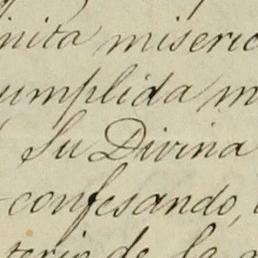 nita miseric
umplida m
Su Divina
confesando,
terio de la